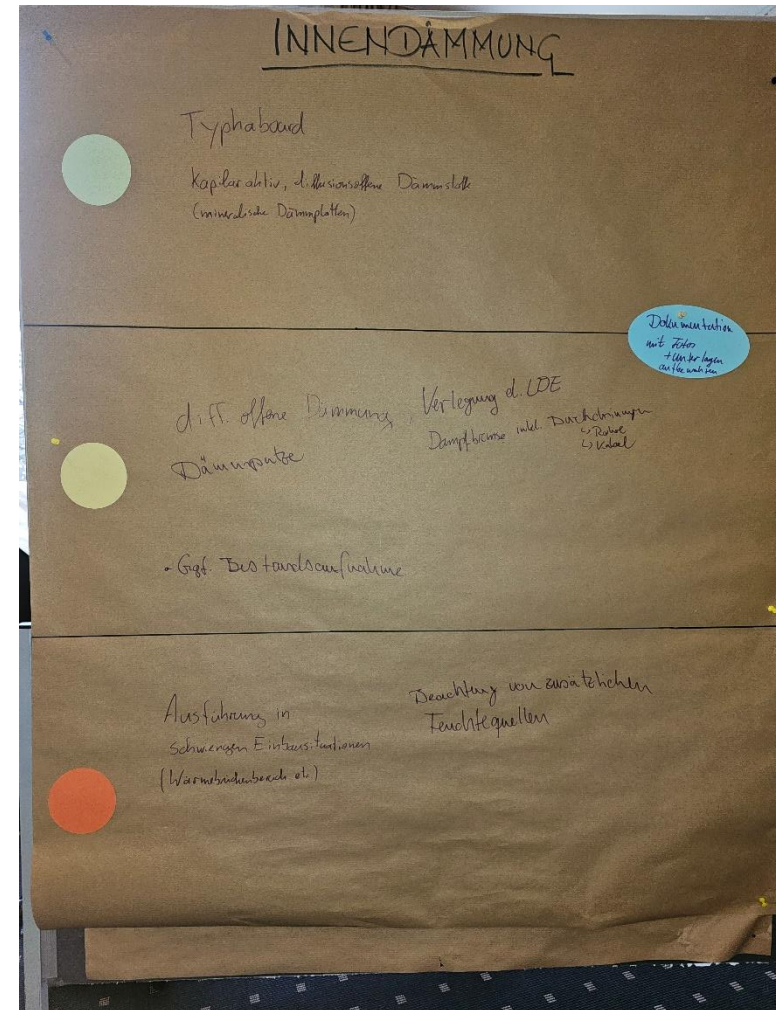 INNENDÄMMUNG
Typhaboard
Kapilaraktiv, diffusionsoffene Dämmstoffe
(mineralische Dämmplatten)
Dokumentation
mit Fotos
+ Unterlagen
aufbewahren
diff. offene Dämmung
Dämmputze
Verlegung d. LDE
Dampfbremse inkl. Durchdringungen
↳ Rohre
↳ Kabel
• Ggf. Bestandsaufnahme
Ausführung in
schwierigen Einbausituationen
(Wärmebrückenbereich etc.)
Beachtung von zusätzlichen
Feuchtequellen